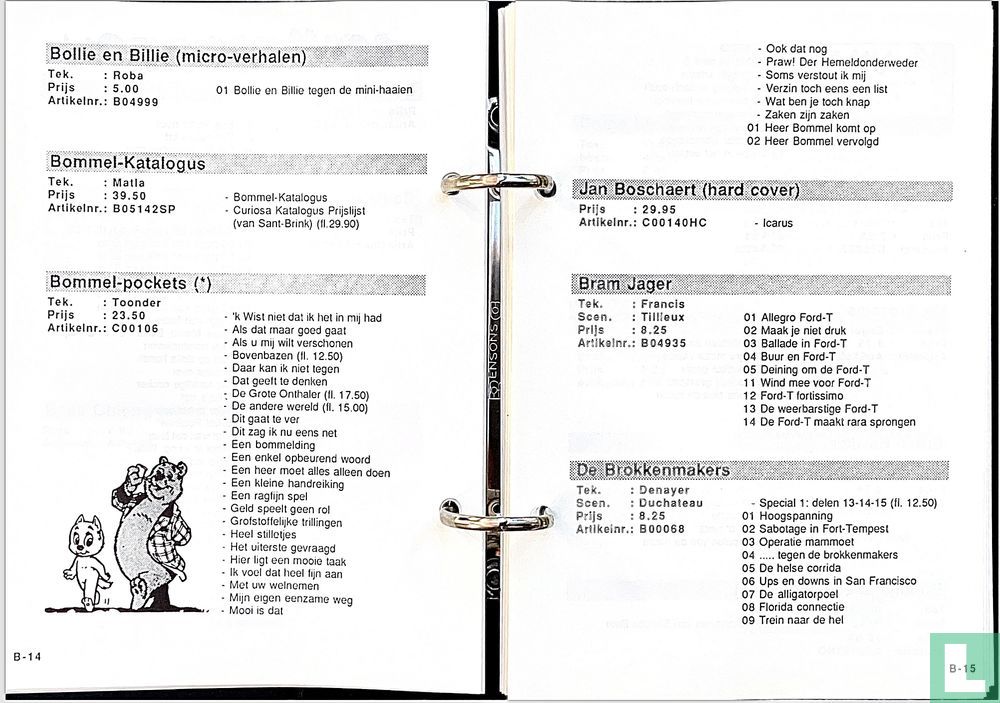 Bollie en Billie (micro-verhalen)
Tek. : Roba
Prijs : 5.00
Artikelnr.: B04999
01 Bollie en Billie tegen de mini-haaien
Bommel-Katalogus
Tek. : Matla
Prijs : 39.50
Artikelnr.: B05142SP
- Bommel-Katalogus
- Curiosa Katalogus Prijslijst
(van Sant-Brink) (fl.29.90)
Bommel-pockets (*)
Tek. : Toonder
Prijs : 23.50
Artikelnr.: C00106
- 'k Wist niet dat ik het in mij had
- Als dat maar goed gaat
- Als u mij wilt verschonen
- Bovenbazen (fl. 12.50)
- Daar kan ik niet tegen
- Dat geeft te denken
- De Grote Onthaler (fl. 17.50)
- De andere wereld (fl. 15.00)
- Dit gaat te ver
- Dit zag ik nu eens net
- Een bommelding
- Een enkel opbeurend woord
- Een heer moet alles alleen doen
- Een kleine handreiking
- Een ragfijn spel
- Geld speelt geen rol
- Grofstoffelijke trillingen
- Heel stilletjes
- Het uiterste gevraagd
- Hier ligt een mooie taak
- Ik voel dat heel fijn aan
- Met uw welnemen
- Mijn eigen eenzame weg
- Mooi is dat
B-14
- Ook dat nog
- Praw! Der Hemeldonderweder
- Soms verstout ik mij
- Verzin toch eens een list
- Wat ben je toch knap
- Zaken zijn zaken
01 Heer Bommel komt op
02 Heer Bommel vervolgd
Jan Boschaert (hard cover)
Prijs : 29.95
Artikelnr.: C00140HC
- Icarus
Bram Jager
Tek. : Francis
Scen. : Tillieux
Prijs : 8.25
Artikelnr.: B04935
01 Allegro Ford-T
02 Maak je niet druk
03 Ballade in Ford-T
04 Buur en Ford-T
05 Deining om de Ford-T
11 Wind mee voor Ford-T
12 Ford-T fortissimo
13 De weerbarstige Ford-T
14 De Ford-T maakt rara sprongen
De Brokkenmakers
Tek. : Denayer
Scen. : Duchateau
Prijs : 8.25
Artikelnr.: B00068
- Special 1: delen 13-14-15 (fl. 12.50)
01 Hoogspanning
02 Sabotage in Fort-Tempest
03 Operatie mammoet
04 ..... tegen de brokkenmakers
05 De helse corrida
06 Ups en downs in San Francisco
07 De alligatorpoel
08 Florida connectie
09 Trein naar de hel
B-15
L